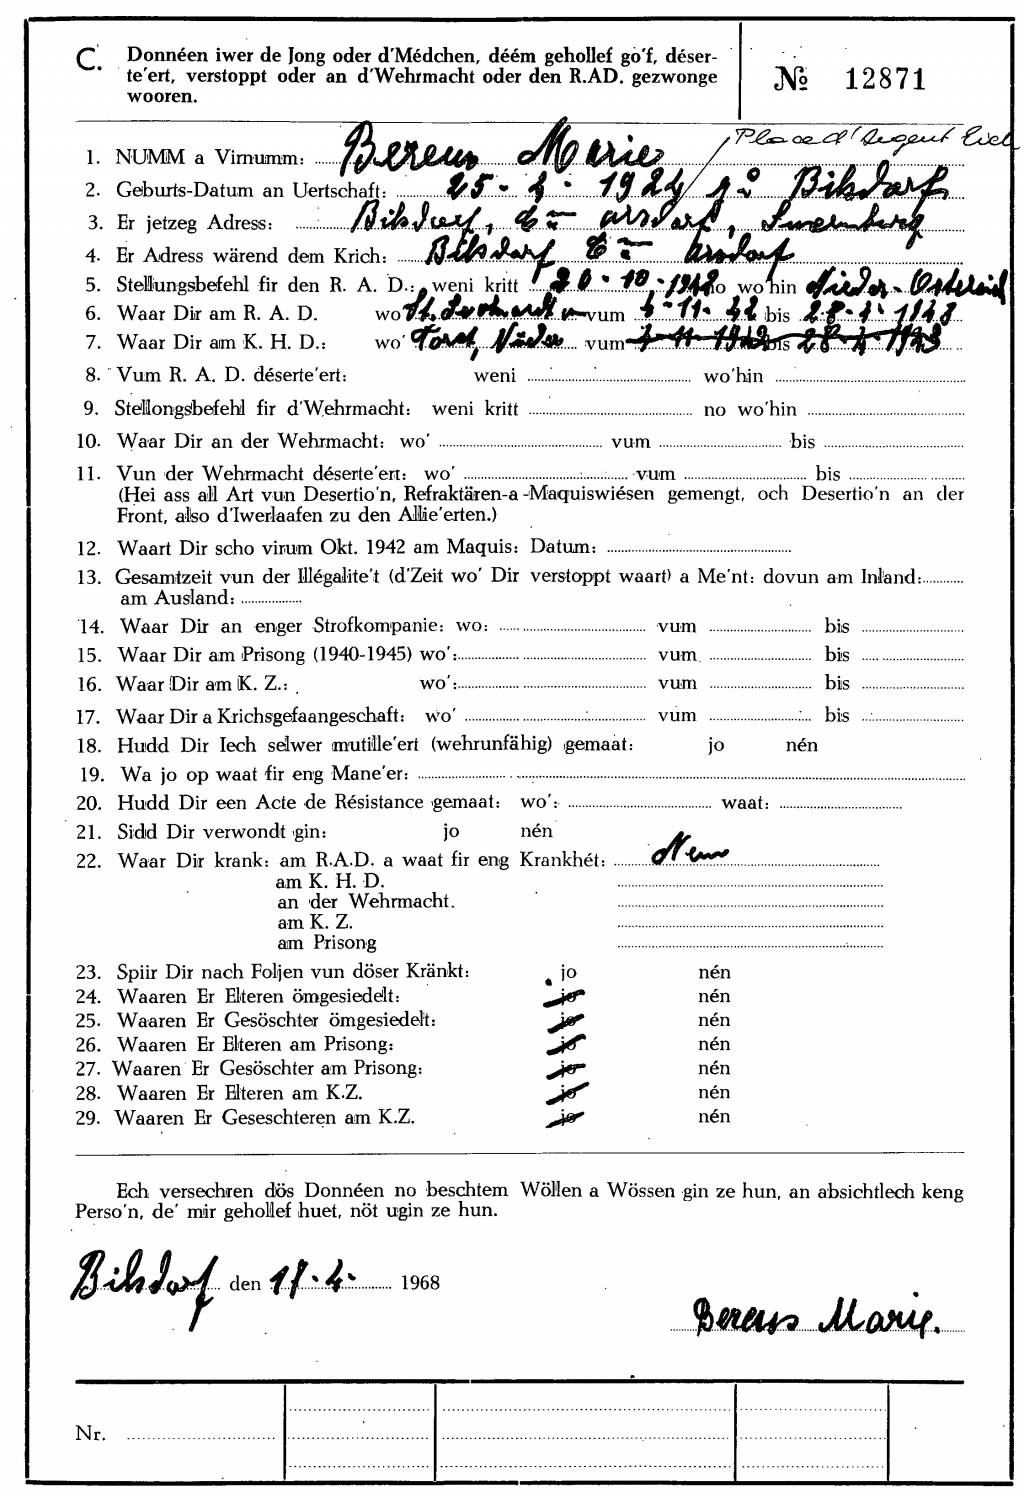 C. Donnéen iwer de Jong oder d'Médchen, déém gehollef go'f, déser-
te'ert, verstoppt oder an d'Wehrmacht oder den R.AD. gezwonge
wooren.
№ 12871
Place d'Argent Eich
1. NUMM a Virnumm: Bereus Marie
2. Geburts-Datum an Uertschaft: 25-4-1924 Bilsdorf
3. Er jetzeg Adress: Bilsdorf, Arsdorf, Luxemburg
4. Er Adress wärend dem Krich: Bilsdorf Arsdorf
5. Stellungsbefehl fir den R. A. D.: weni kritt 20-10-1942 no wo hin Nieder-Ostereich
6. Waar Dir am R. A. D. wo St. Leonhardt vum 4-11-42 bis 28-4-1943
7. Waar Dir am K. H. D.: wo' Forst, Nieder vum 4-11-1942 bis 28-4-1943
8. Vum R. A. D. déserte'ert: weni wo'hin
9. Stellongsbefehl fir d'Wehrmacht: weni kritt no wo'hin
10. Waar Dir an der Wehrmacht: wo' vum bis
11. Vun der Wehrmacht déserte'ert: wo' vum bis
(Hei ass all Art vun Desertio'n, Refraktären-a-Maquiswiésen gemengt, och Desertio'n an der
Front, also d'Iwerlaafen zu den Allie'erten.)
12. Waart Dir scho virum Okt. 1942 am Maquis: Datum:
13. Gesamtzeit vun der Illégalite't (d'Zeit wo' Dir verstoppt waart) a Me'nt: dovun am Inland:
am Ausland:
14. Waar Dir an enger Strofkompanie: wo: vum bis
15. Waar Dir am Prisong (1940-1945) wo': vum bis
16. Waar Dir am K. Z.: wo': vum bis
17. Waar Dir a Krichsgefaangeschaft: wo' vum bis
18. Hudd Dir Iech selwer mutille'ert (wehrunfähig) gemaat: jo nén
19. Wa jo op waat fir eng Mane'er:
20. Hudd Dir een Acte de Résistance gemaat: wo': waat:
21. Sidd Dir verwondt gin: jo nén
22. Waar Dir krank: am R.A.D. a waat fir eng Krankhét:
am K. H. D.
an der Wehrmacht.
am K. Z.
am Prisong
23. Spiir Dir nach Foljen vun döser Kränkt: jo nén
24. Waaren Er Elteren ömgesiedelt: jo nén
25. Waaren Er Gesöschter ömgesiedelt: jo nén
26. Waaren Er Elteren am Prisong: jo nén
27. Waaren Er Gesöschter am Prisong: jo nén
28. Waaren Er Elteren am K.Z. jo nén
29. Waaren Er Geseschteren am K.Z. jo nén
Ech versechren dös Donnéen no beschtem Wöllen a Wössen gin ze hun, an absichtlech keng
Perso'n, de' mir gehollef huet, nöt ugin ze hun.
Bilsdorf den 17-4- 1968
Bereus Marie.
Nr.